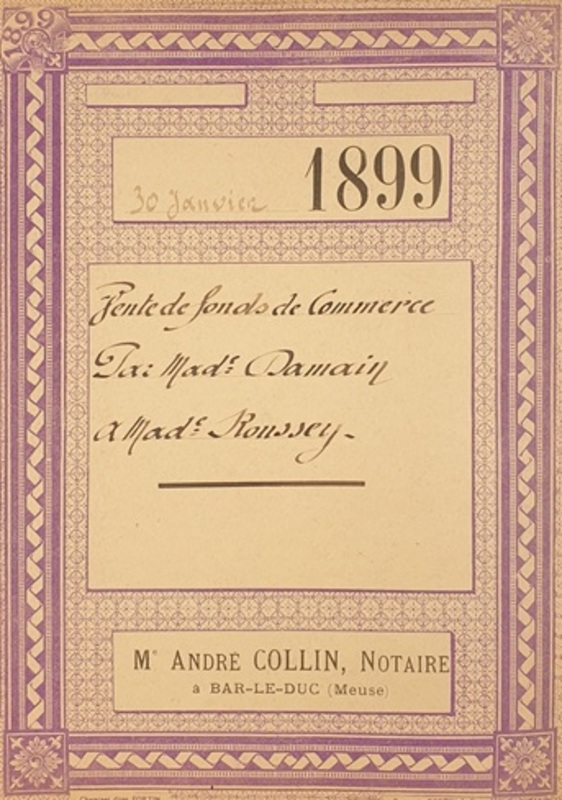 1899
30 Janvier 1899
Vente de fonds de Commerce
Par Madᵉ Damain
A Madᵉ Roussey -
Mᵉ ANDRÉ COLLIN, NOTAIRE
à BAR-LE-DUC (Meuse)